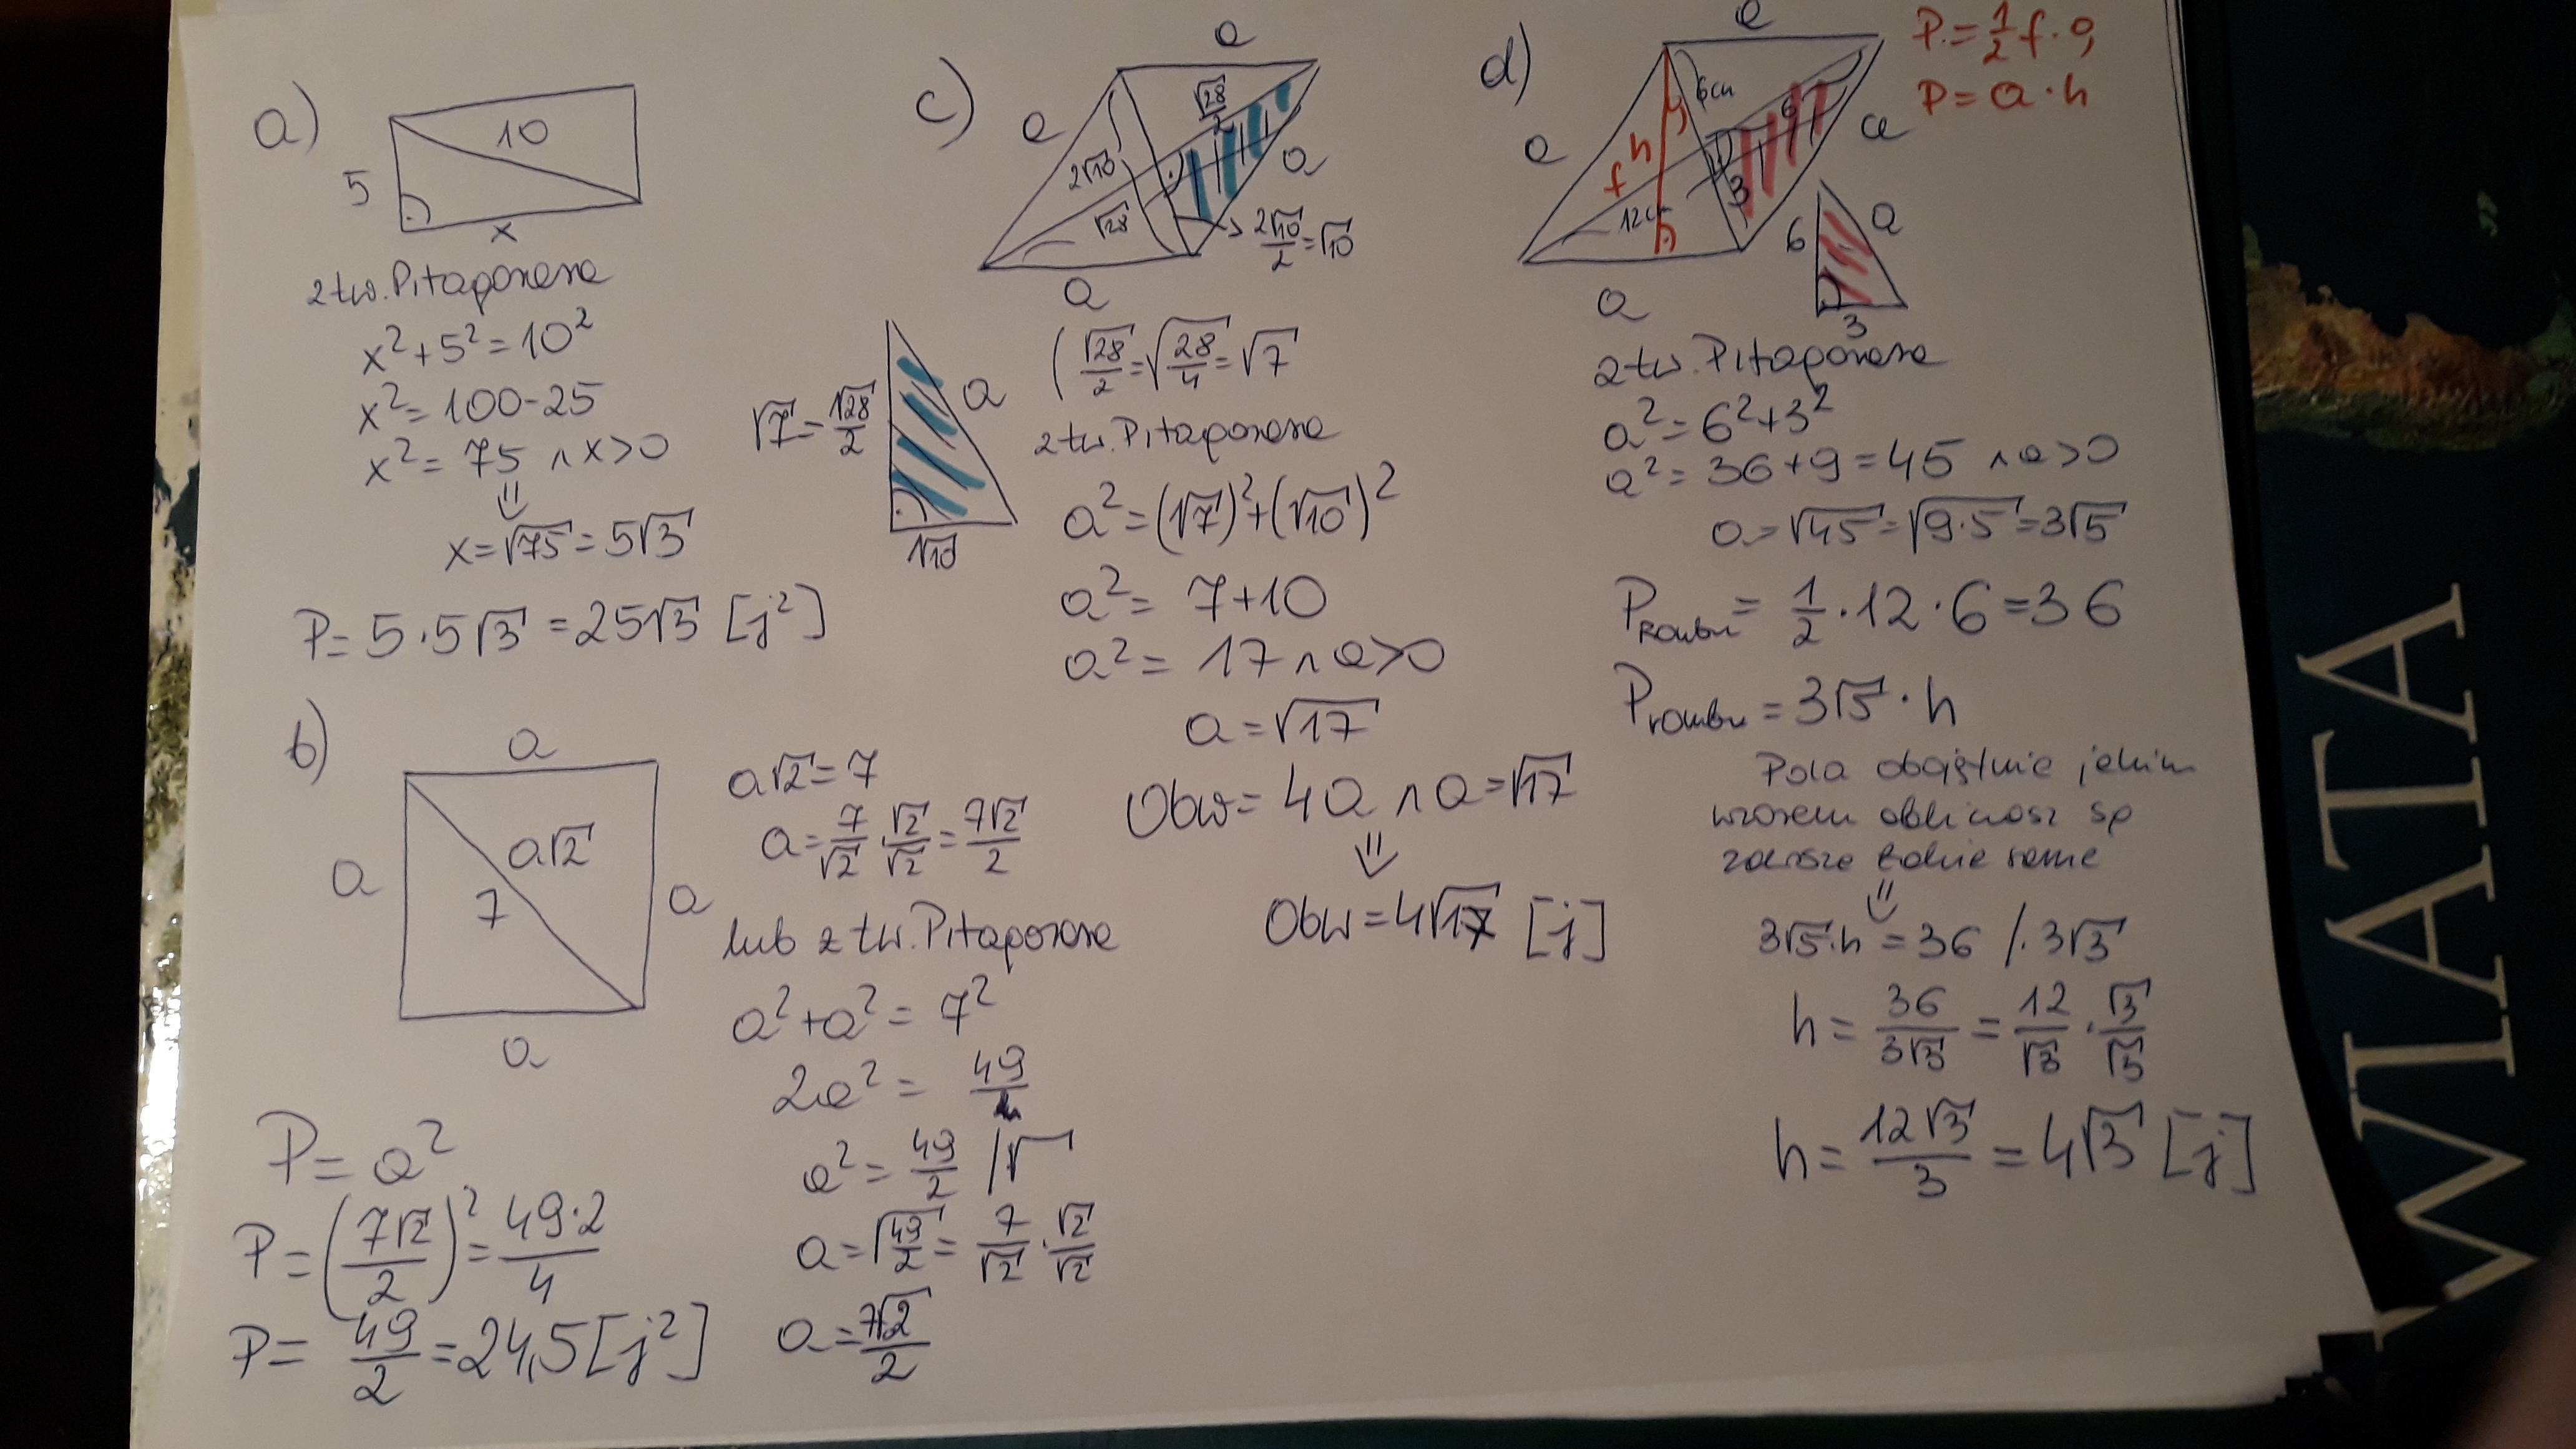 a)
10
5
x
z tw. Pitagorasa
x²+5²=10²
x²=100-25
x²=75 ∧ x>0
⇓
x=√75=5√3
P=5·5√3=25√3 [j²]
b)
a
a√2
7
a
a
a
a√2=7
a=7/√2·√2/√2=7√2/2
lub z tw. Pitagorasa
a²+a²=7²
2a²=49
a²=49/2 /√
a=√49/2=7/√2·√2/√2
a=7√2/2
P=a²
P=(7√2/2)²=49·2/4
P=49/2=24,5[j²]
c)
a
a
√28/2
2√10
a
√28
2√10/2=√10
a
(√28/2=√28/4=√7
√7=√28/2
a
√10
z tw. Pitagorasa
a²=(√7)²+(√10)²
a²=7+10
a²=17 ∧ a>0
a=√17
Obw=4a ∧ a=√17
⇓
Obw=4√17 [j]
d)
a
P=1/2 f·e
P=a·h
6cm
6
a
a
h
f
12cm
3
a
6
a
3
z tw. Pitagorasa
a²=6²+3²
a²=36+9=45 ∧ a>0
a=√45=√9·5=3√5
Prombu=1/2·12·6=36
Prombu=3√5·h
Pola obojętnie jakim
wzorem obliczasz są
zawsze takie same
⇓
3√5·h=36 /:3√3
h=36/3√3=12/√3·√3/√3
h=12√3/3=4√3 [j]
WIATA